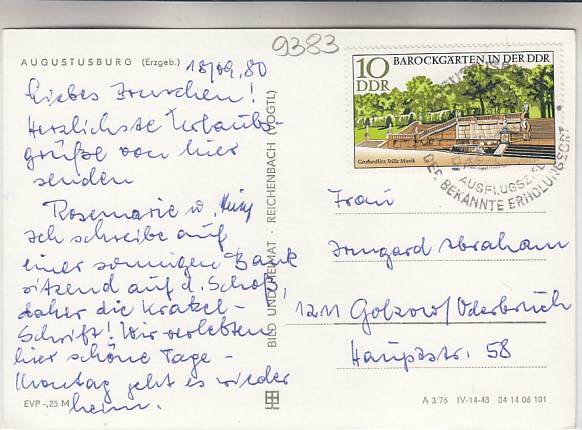 9383
AUGUSTUSBURG (Erzgeb.)
18/09.80
Liebes Irmchen!
Herzlichste Urlaubs-
grüße von hier
senden
Rosemarie u.
Ich schreibe auf
einer sonnigen Bank
sitzend auf d. Schoß,
daher die Krakel-
Schrift! Wir verlebten
hier schöne Tage -
Montag geht es wieder
heim.
EVP -,25 M
BILD UND HEIMAT · REICHENBACH (VOGTL)
BAROCKGÄRTEN IN DER DDR
10
DDR
Großsedlitz, Stille Musik
AUSFLUGSZ
DER BEKANNTE ERHOLUNGSORT
Frau
Irmgard Abraham
1211 Golzow/Oderbruch
Hauptstr. 58
A 3/76 IV-14-48 04 14 06 101